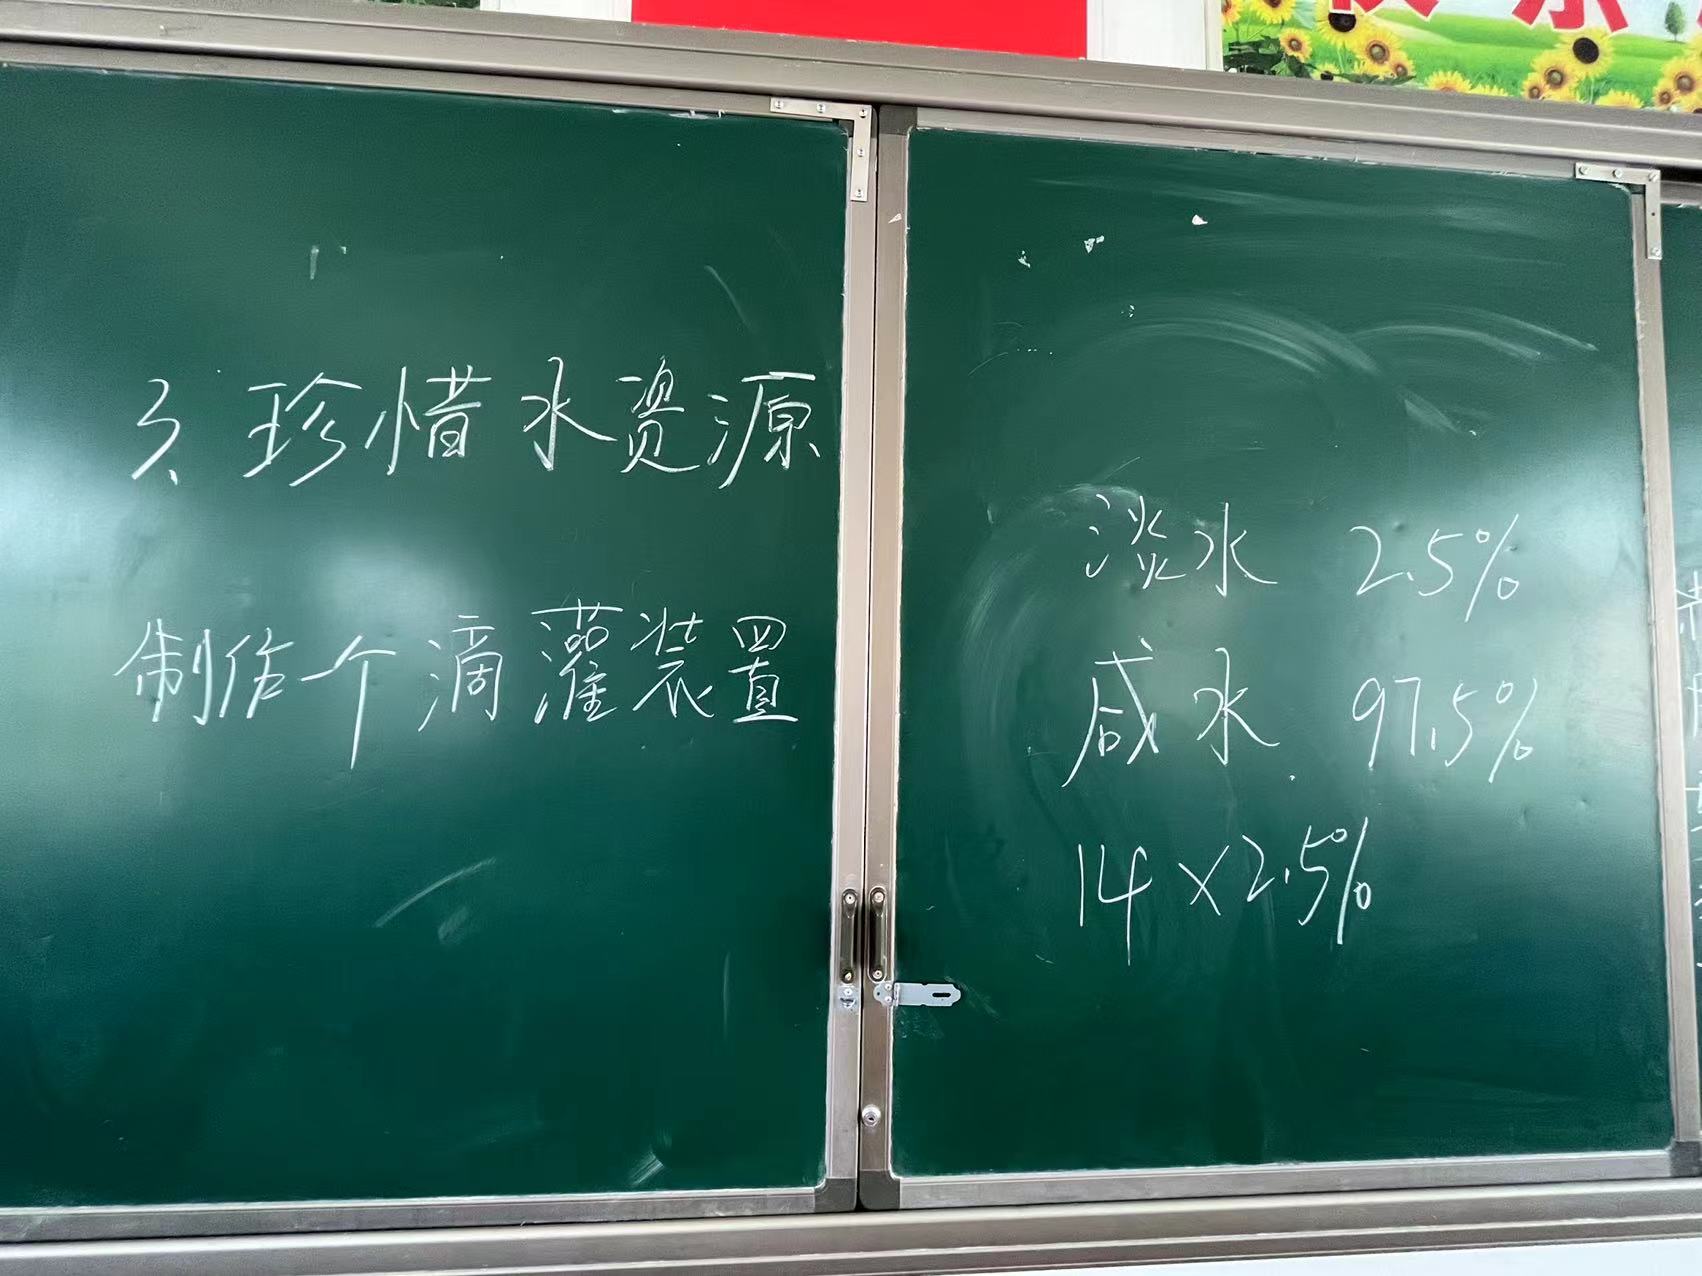 3、珍惜水资源
制作一个滴灌装置
淡水 2.5%
咸水 97.5%
14×2.5%